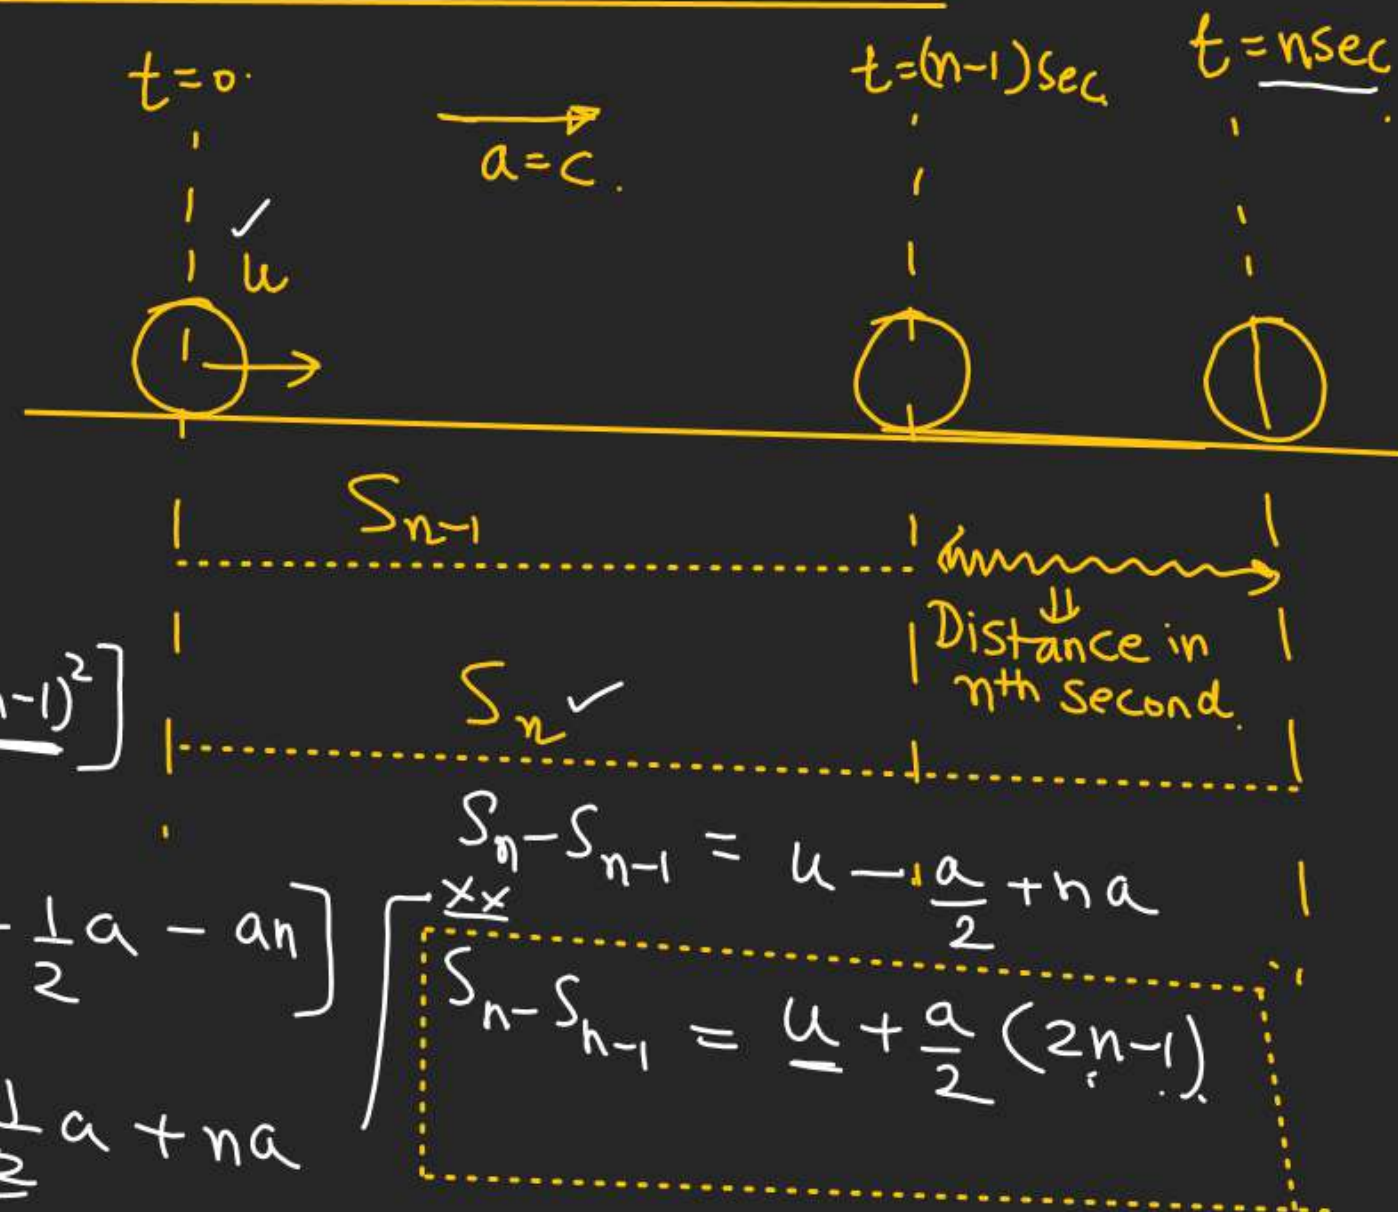 t=0.
t=(n-1)Sec
t=nsec.
a=c.
u
S_{n-1}
Distance in
nth second.
S_n ✓
n-1)²]
S_n-S_{n-1} = u - a/2 + na
- 1/2 a - an]
xx
S_n-S_{n-1} = u + a/2 (2n-1).
1/2 a + na